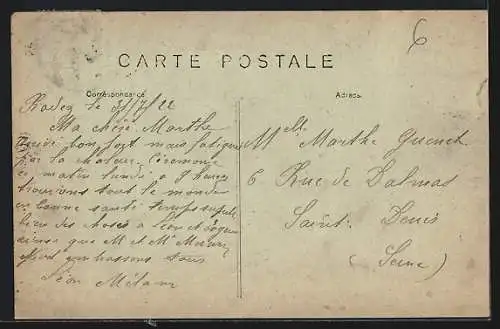 6
CARTE POSTALE
Correspondance
Adresse
Rodez le 31/7/22
Ma chère Marthe
bon port mais fatigués
par la chaleur. Cérémonie
ce matin lundi à 9 heures
trouvons tout le monde
en bonne santé temps
bien des choses à Léon et
ainsi que M et Mme
embrassons tous
Léon
Mlle Marthe Guenet
6 Rue de Dalmas
Saint Denis
(Seine)